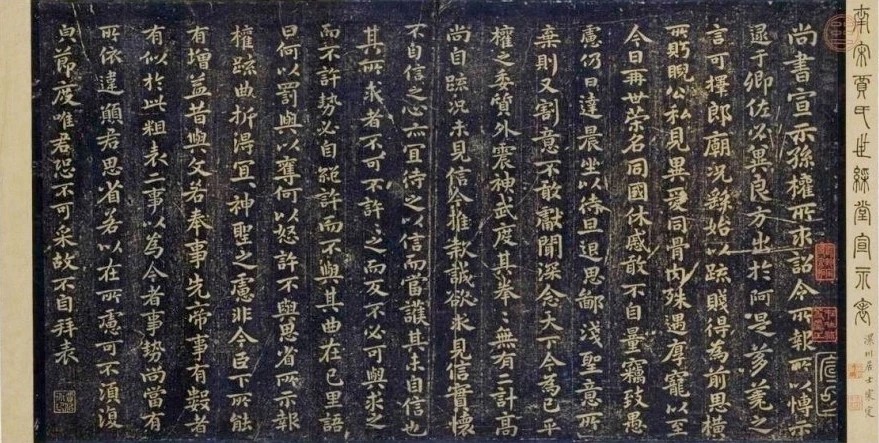 南宋賈氏世綵堂宣示表
尚書宣示孫權所求詔令所報所以博示
逮于卿佐必冀良方出於阿是芻蕘之
言可擇郎廟況繇始以疏賤得為前恩橫
所眄睨公私見異愛同骨肉殊遇厚寵以至
今日再世榮名同國休慼敢不自量竊致愚
慮仍日達晨坐以待旦退思鄙淺聖意所
棄則又割意不敢獻聞深念天下今為已平
權之委質外震神武度其拳〻無有二計高
尚自疏況未見信今推款誠欲求見信實懷
不自信之心亦宜待之以信而當護其未自信也
其所求者不可不許〻之而反不必可與求之
而不許勢必自絕許而不與其曲在己里語
曰何以罰與以奪何以怒許不與思省所示報
權疏曲折得宜〻神聖之慮非今臣下所能
有增益昔與文若奉事先帝事有數者
有似於此粗表二事以為今者事勢尚當有
所依違願君思省若以在所慮可不須復
節度唯君恐不可采故不自拜表